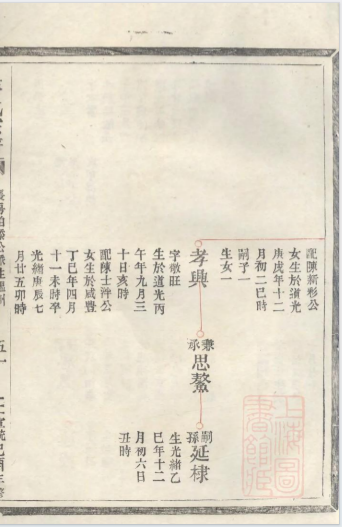 配陳新彩公
女生於道光
庚戌年十二
月初二巳時
嗣子一
生女一
孝興
字敬旺
生於道光丙
午年九月三
十日亥時
配陳士濟公
女生於咸豐
丁巳年四月
十一未時卒
光緒庚辰七
月廿五卯時
兼承思鰲
嗣孫延棣
生光緒乙
巳年十二
月初六日
丑時
五十一
上海圖書館藏